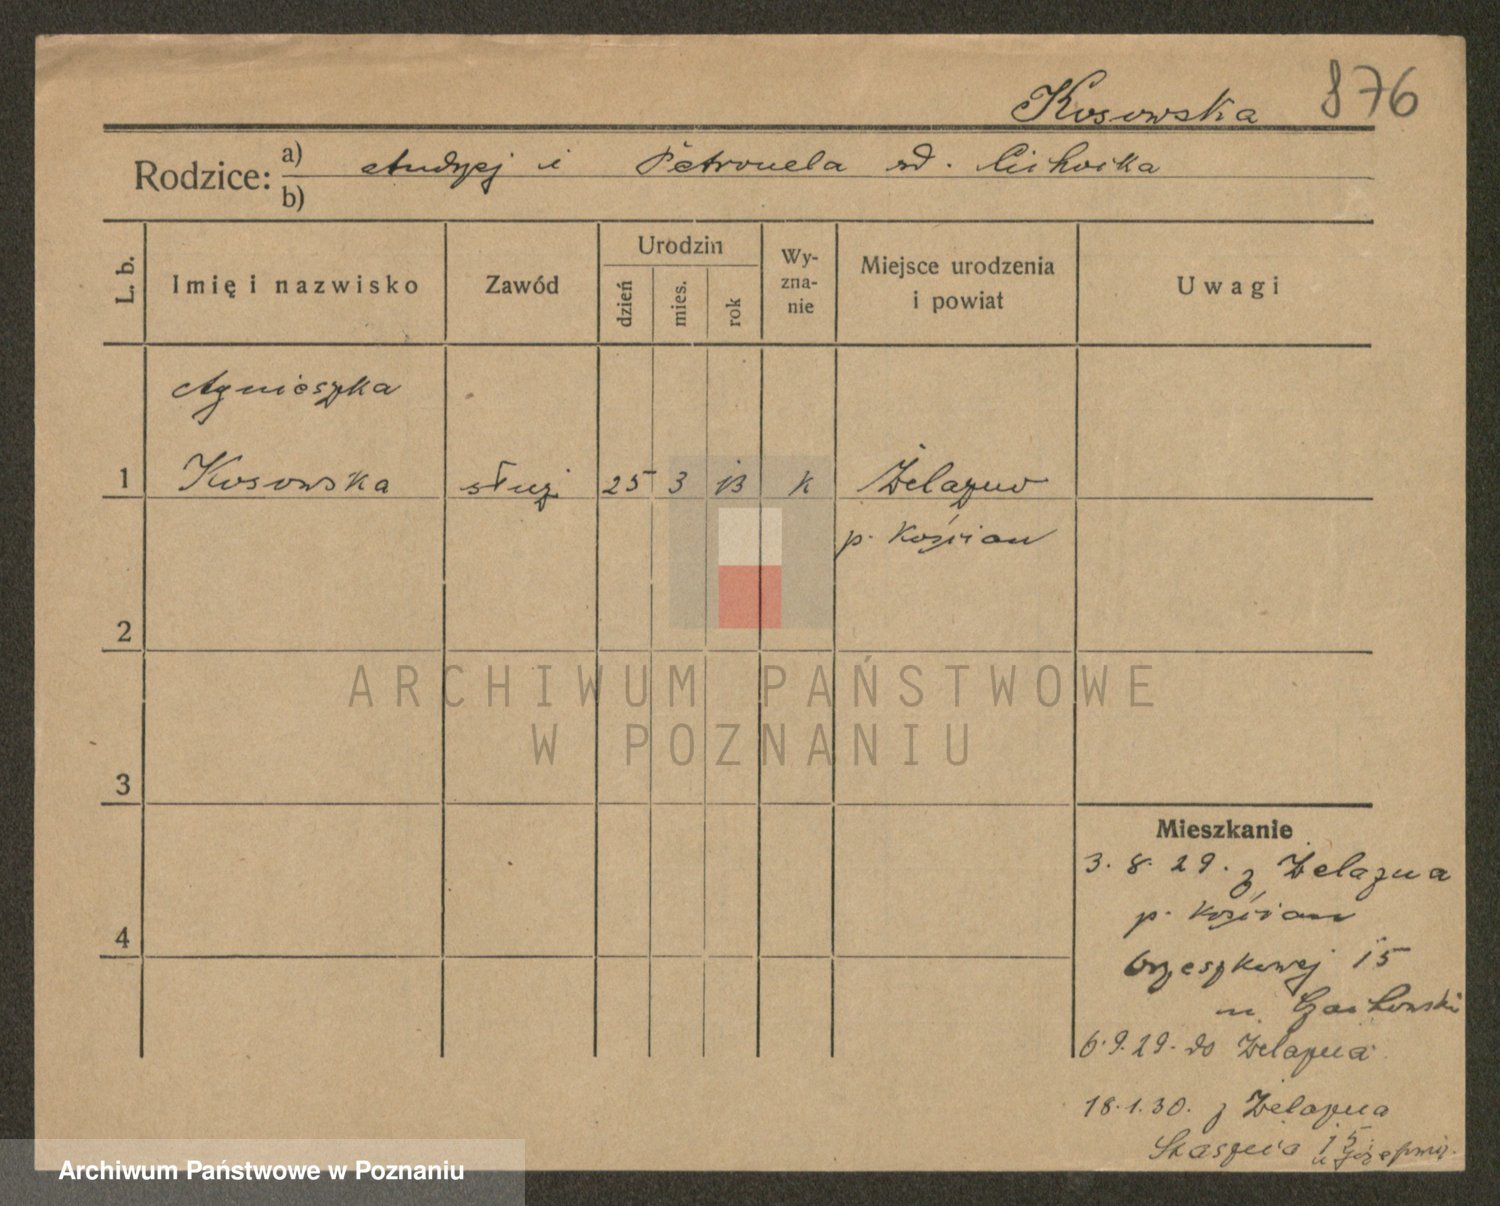 Kosowska 876
Rodzice: a) Andrzej i Petronela rd. Cichocka
b)
L. b.
Imię i nazwisko
Zawód
Urodzin
dzień
mies.
rok
Wy-
zna-
nie
Miejsce urodzenia
i powiat
Uwagi
Agnieszka
1 Kosowska służ 25 3 13 k Żelazno
p. Kościan
2
3
4
Mieszkanie
3. 8. 29. z Żelazna
p. Kościan
Orzeszkowej 15
u.
6. 9. 29. do Żelazna
18. 1. 30. z Żelazna
Staszica 15
u
ARCHIWUM PAŃSTWOWE
W POZNANIU
Archiwum Państwowe w Poznaniu